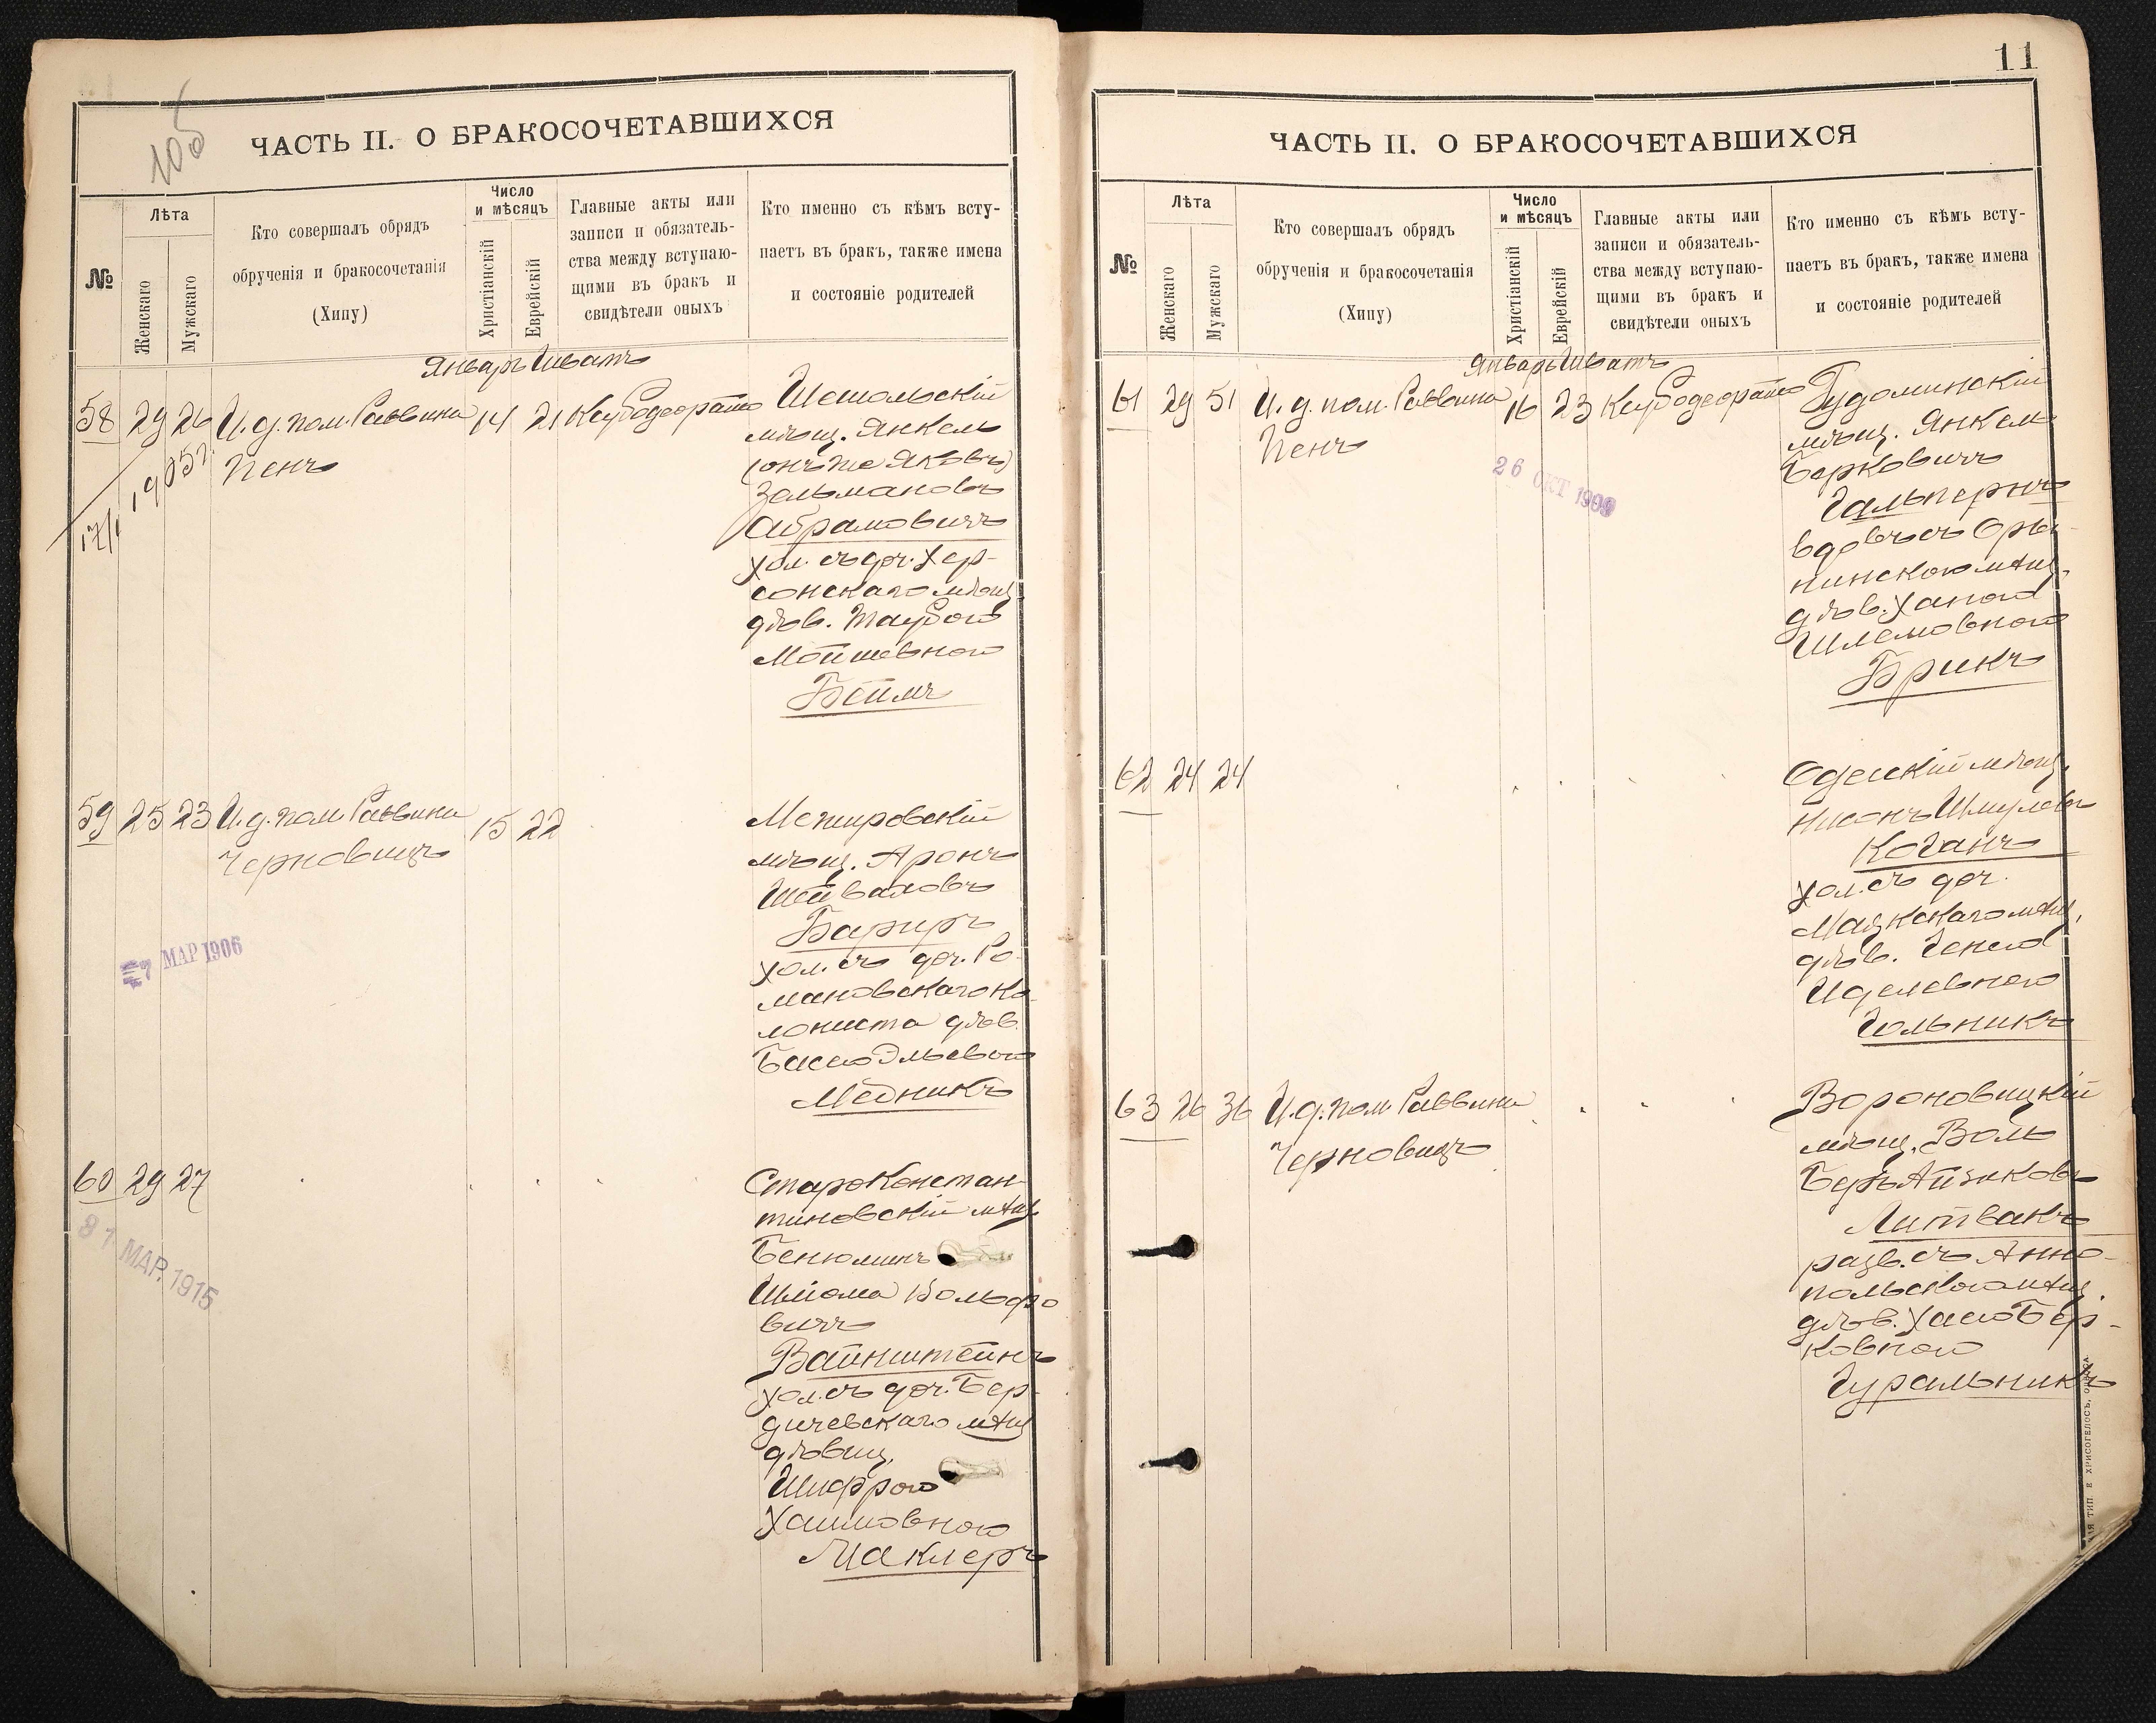 105
ЧАСТЬ II. О БРАКОСОЧЕТАВШИХСЯ
№
Лѣта
Женскаго
Мужскаго
Кто совершалъ обрядъ
обрученія и бракосочетанія
(Хипу)
Число
и мѣсяцъ
Христіанскій
Еврейскій
Главные акты или
записи и обязатель-
ства между вступаю-
щими въ бракъ и
свидѣтели оныхъ
Кто именно съ кѣмъ всту-
паетъ въ бракъ, также имена
и состояніе родителей
Январь Шватъ
58 29 26 И. д. пом. Раввина 14 21
Пенъ
мѣщ. Янкель
(онъ же Яковъ)
Зельмановъ
Абрамовичъ
хол. съ доч. Хер-
сонскаго мѣщ.
дѣв. Таубою
Мойшевною
Беймъ
59 25 23 И. д. пом. Раввина 15 22
Черновицъ
7 МАР 1906
Межировскій
мѣщ. Аронъ
Шейваховъ
хол. съ доч. Ро-
мановскаго ко-
лониста дѣв.
Басею Эльевою
Медникъ
60 29 27
31 МАР. 1915
Староконстан-
тиновскій мѣщ.
Беньюминъ
Шліома Вольфо
вичъ
Вайнштейнъ
хол. съ доч. Бер-
дичевскаго мѣщ
дѣвиц.
Шифрою
Хаимовною
Маклеръ
11
ЧАСТЬ II. О БРАКОСОЧЕТАВШИХСЯ
№
Лѣта
Женскаго
Мужскаго
Кто совершалъ обрядъ
обрученія и бракосочетанія
(Хипу)
Число
и мѣсяцъ
Христіанскій
Еврейскій
Главные акты или
записи и обязатель-
ства между вступаю-
щими въ бракъ и
свидѣтели оныхъ
Кто именно съ кѣмъ всту-
паетъ въ бракъ, также имена
и состояніе родителей
Январь Шватъ
61 29 51 И. д. пом. Раввина 16 23
Пенъ
26 ОКТ 1909
мѣщ. Янкель
Берковичъ
Гальперинъ
вдов. съ Оры-
нинскою мѣщ.
дѣв. Ханою
Шлемовною
Брикъ
62 24 24
Одесскій мѣщ.
Нисонъ Шмулевъ
Коганъ
хол. съ доч.
Маякскаго мѣщ.
дѣв. Генею
Иделевною
Гольникъ
63 26 36 И. д. пом. Раввина
Черновицъ
Вороновицкій
мѣщ. Воль
Беръ Айзиковъ
Литвакъ
разв. съ Анно-
польскою мѣщ.
дѣв. Хасею Бер-
ковною
Гуральникъ
ТИП. Е ХРИСОГЕЛОСЪ, ОДЕССА